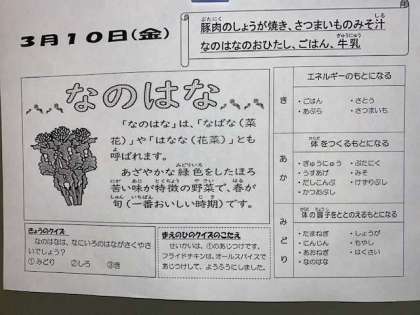 3月10日(金)
豚肉のしょうが焼き、さつまいものみそ汁
なのはなのおひたし、ごはん、牛乳
なのはな
「なのはな」は、「なばな(菜
花)」や「はなな(花菜)」とも
呼ばれます。
あざやかな緑色をしたほろ
苦い味が特徴の野菜で、春が
旬(一番おいしい時期)です。
きょうのクイズ
なのはなは、なにいろのはながさくやさ
いでしょう?
①みどり ②しろ ③き
まえのひのクイズのこたえ
せいかいは、①のあじつけです。
フライドチキンは、オールスパイスで
あじつけして、ようふうにしました。
エネルギーのもとになる
き
・ごはん ・さとう
・あぶら ・さつまいも
体をつくるもとになる
あか
・ぎゅうにゅう ・ぶたにく
・うすあげ ・みそ
・だしこんぶ ・けずりぶし
・かつおぶし
体の調子をととのえるもとになる
みどり
・たまねぎ ・しょうが
・にんじん ・もやし
・あおねぎ ・はくさい
・なのはな